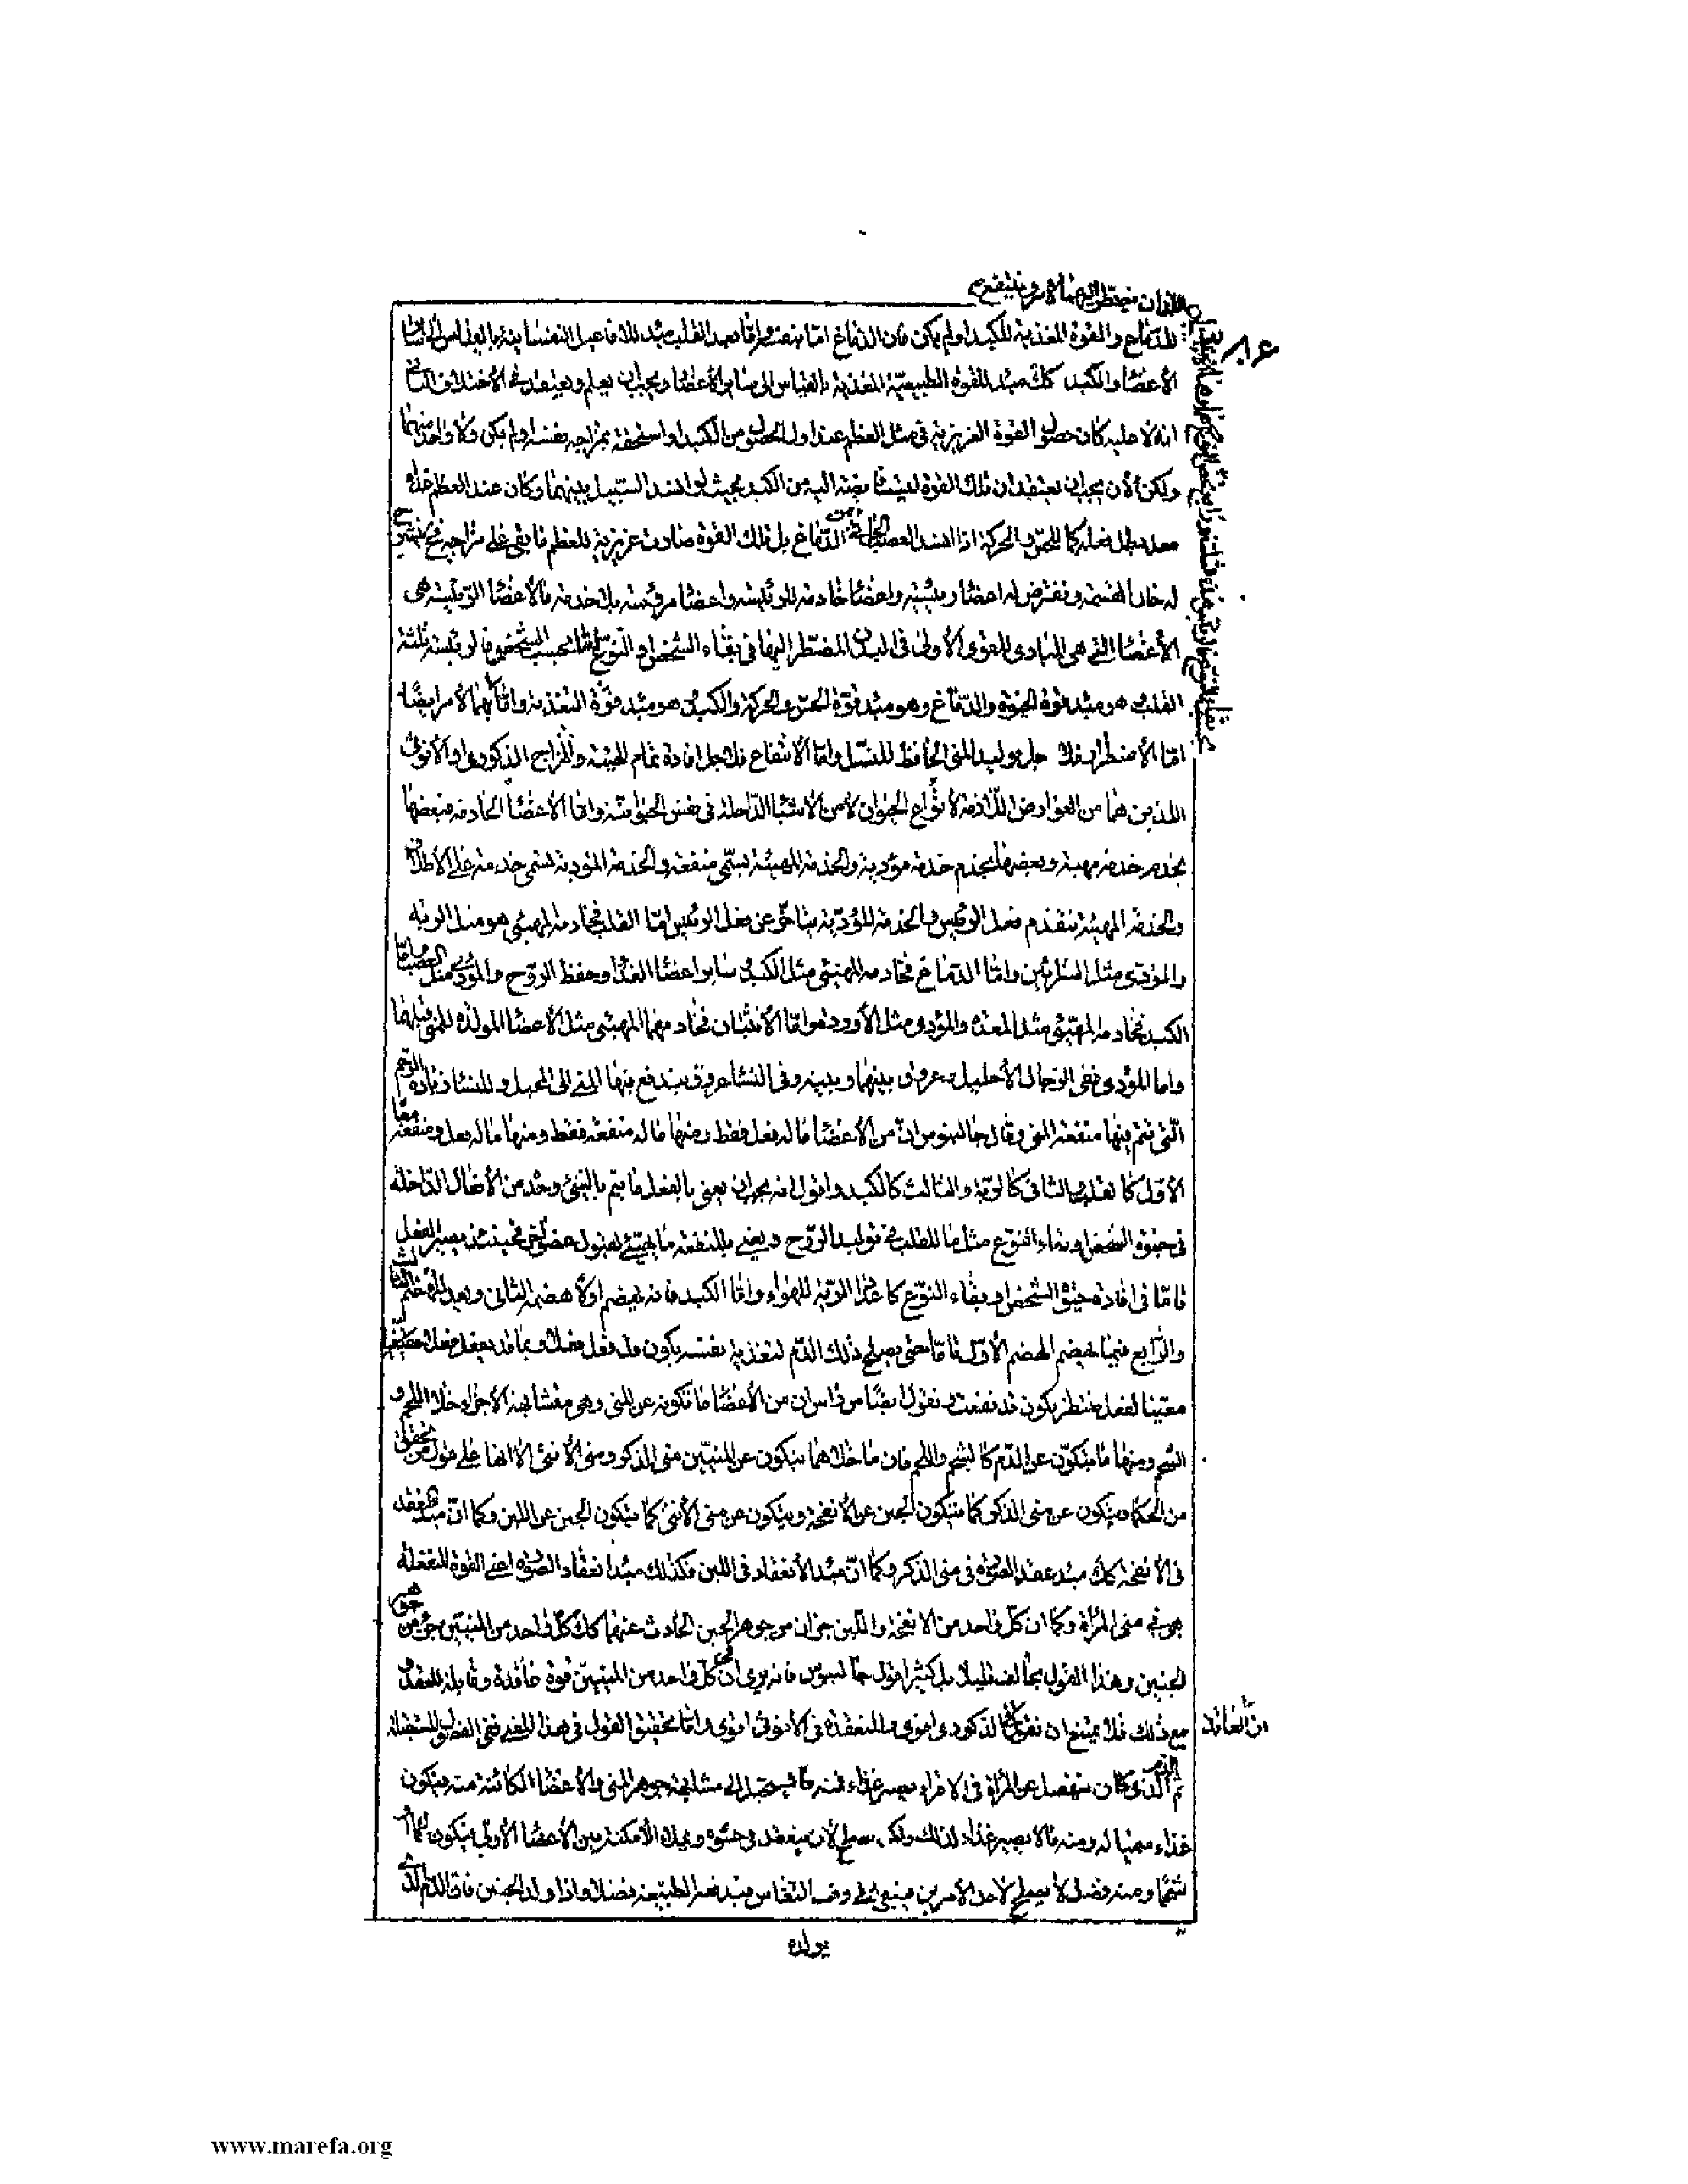 للدماغ والقوة المغذية للكبد او لم يكن فان الدماغ اما بنفسه واما بعد القلب مبدء للافاعيل النفسانية بالقياس الى سائر
الأعضاء والكبد كك مبدء للقوة الطبيعية المغذية بالقياس الى سائر الأعضاء ويجب ان يعلم ويعتقد في الأختلاف الثاني
انه لا عليه كان حصول القوة الغريزية في مثل العظم عند اول الحصول من الكبد او استحقه بمزاجه نفسه او لم يكن ولا واحد منهما
ولكن الأن يجب ان يعتقد ان تلك القوة ليست فايضة اليه من الكبد بحيث لو انسد السبيل بينهما وكان عند العظم غذاء
معد بطل فعله كما للحس والحركة اذا انسد العصب الجائى من الدماغ بل تلك القوة صارت غريزية للعظم ما بقى على مزاجه
له حال القسمة ونفترض له اعضاء رئيسة واعضاء خادمة للرئيسة واعضاء مرؤسة بلا خدمة فالأعضاء الرئيسة هى
الأعضاء التى هى المبادى للقوى الأولى فى البدن المضطر اليها فى بقاء الشخص او النوع اما بحسب الشخص فالرئيسة ثلثة
القلب وهو مبدء قوة الحيوة والدماغ وهو مبدء قوة الحس والحركة والكبد وهو مبدء قوة التغذية
اما الأضطرار فلاجل توليد المنى الحافظ للنسل واما الأنتفاع فلاجل افادة تمام الهيئة والمزاج الذكورى او الأنوثى
اللذين هما من العوارض اللازمة لأنواع الحيوان لا من الأشياء الداخلة فى نفس الحيوانية واما الأعضاء الخادمة فبعضها
يخدم خدمة مهيئة وبعضها يخدم خدمة مؤدية والخدمة المهيئة تسمى منفعة والخدمة المؤدية تسمى خدمة على الأطلاق
والخدمة المهيئة تتقدم فعل الرئيس والخدمة المؤدية يتاخر عن فعل الرئيس اما القلب فخادمه المهيئ هو مثل الرية
والمؤدى مثل الشرائين واما الدماغ فخادمه المهيئ مثل الكبد و سائر اعضاء الغذاء وحفظ الروح والمؤدى مثل العصب واما
الكبد فخادمه المهيئ مثل المعدة والمؤدى مثل الأوردة واما الأنثيان فخادمهما المهيئ مثل الأعضاء المولدة للمنى قبلهما
واما المؤدى ففى الرجال الأحليل وعروق بينهما وبينه وفى النساء عروق يندفع فيها المنى الى المحبل وللنساء زيادة الرحم
التى تتم فيها منفعة المنى وقال جالينوس ان من الأعضاء ما له فعل فقط ومنها ما له منفعة فقط ومنها ما له فعل ومنفعة معا
الأول كالقلب والثانى كالرية والثالث كالكبد واقول انه يجب ان يعنى بالفعل ما يتم بالشئ وحده من الأفعال الداخلة
فى حيوة الشخص او بقاء النوع مثل ما للقلب فى توليد الروح ويعنى بالمنفعة ما يهيئ لقبول فعل عضو اخر فحينئذ يصير الفعل
تاما فى افادة حيوة الشخص او بقاء النوع كاعداد الرية للهواء واما الكبد فانه يهضم اولا هضمه الثانى ويعد للهضم الثالث
والرابع فيما يهضم الهضم الأول تاما حتى يصلح ذلك الدم لتغذية نفسه يكون قد فعل فعلا وبما قد يفعل فعلا
معينا لفعل منتظر يكون قد نفعت و نقول ايضا من راس ان من الأعضاء ما تكونه عن المنى وهى متشابهة الأجزاء خلا اللحم و
الشحم ومنها ما يتكون عن الدم كالشحم واللحم فان ما خلاهما يتكون عن المنيين منى الذكر ومنى الأنثى الا انها على قول من تحقق
من الحكماء يتكون عن منى الذكر كما يتكون الجبن عن الأنفحة ويتكون عن منى الأنثى كما يتكون الجبن عن اللبن وكما ان مبدء العقد
فى الأنفحة كك مبدء عقد الصورة فى منى الذكر وكما ان مبدء الأنعقاد فى اللبن فكذلك مبدء انعقاد الصورة اعنى القوة المنفعلة
هو فى منى المرأة وكما ان كل واحد من الانفحة واللبن جزء من جوهر الجبن الحادث عنهما كك كل واحد من المنيين جزء من جوهر
الجنين وهذا القول يخالف قليلا بل كثيرا قول جالينوس فانه يرى ان فى كل واحد من المنيين قوة عاقدة وقابلة للعقد و
مع ذلك فلا يمتنع ان يقول ان العاقدة فى الذكورى اقوى والمنعقدة فى الأنوثى اقوى واما تحقيق القول فى هذا المعنى ففى
ثم الدم الذى كان ينفصل عن المرأة فى الاقراء يصير غذاء فمنه ما يستحيل الى مشابهة جوهر المنى والأعضاء الكائنة منه فيكون
غذاء منميا له ومنه ما لا يصير غذاء لذلك ولكن يصلح لأن ينعقد فى حشوه ويملأ الأمكنة بين الأعضاء الأولى فيكون لحما او
شحما ومنه فضل لا يصلح لأحد الأمرين فيبقى الى وقت النفاس فيدفعه الطبيعة فضلا واذا ولد الجنين فان الدم الذى
يولده
www.marefa.org